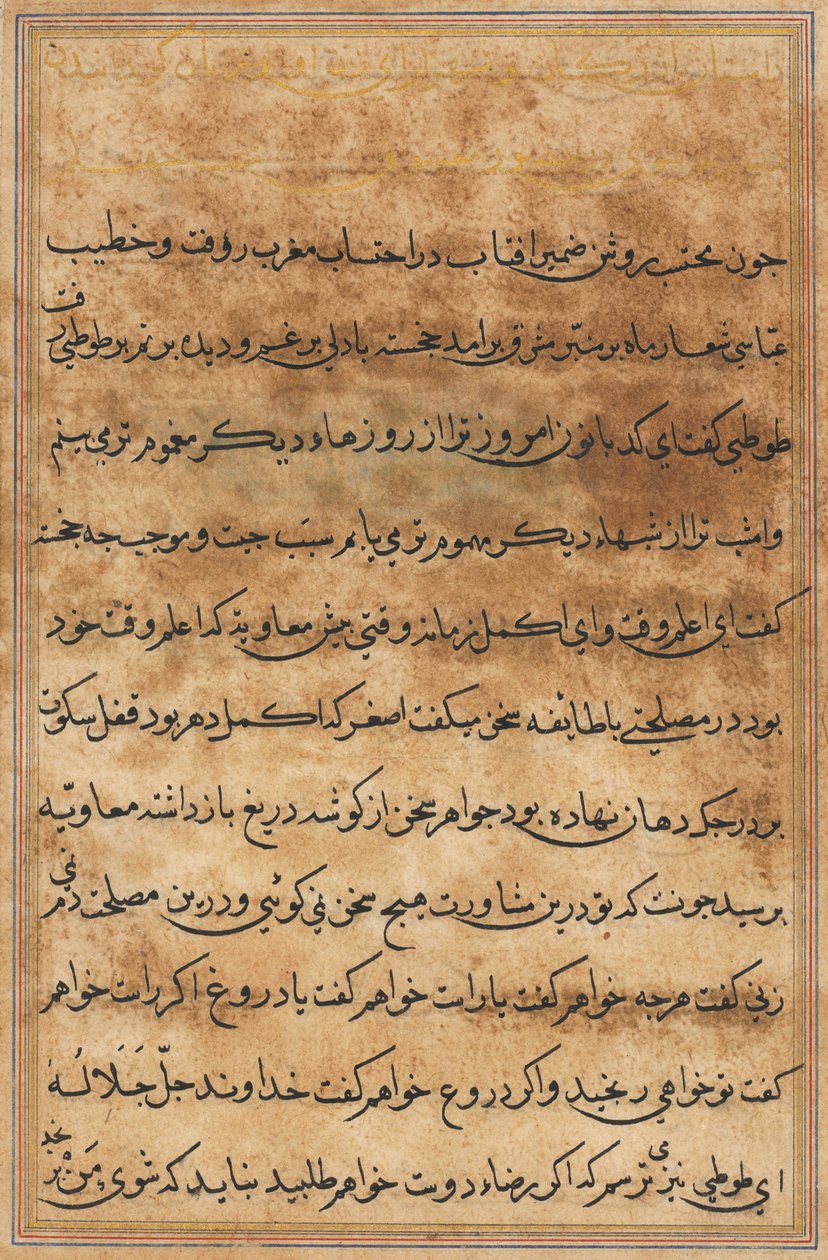 جون محتسب روشن ضمیر افتاب در احتساب مغرب رؤفت و خطیب
عبّاسي شعار ماه بر منبّر مشرق برامد خجسته با دلي برغم و دیده برنم بر طوطي رفت
طوطي کفت اي کدبانو ن امروز ترا از روزهاء دیکر مغموم تر مي بینم
وامشب ترا از شبهاء دیکر مهموم تر مي یابم سبَب جیت و موجب جه خجسته
کفت اي اعلم وقت و اي اکمل زمانه وقتي بیش معاویه که اعلم وقت خود
بود در مصلحتي با طایفه سخن میکفت اصغر که اکمل دهر بود قفل سکوت
بر درجک دهان نهاده بود جواهر سخن از کوشه دریغ باز داشته معاویّه
برسید جونت که تو درین مشاورت هیج سخن ني کوئي و درین مصلحت دم ني
زني کفت هرجه خواهم کفت یا راست خواهم کفت یا دروغ اکر راست خواهم
کفت تو خواهي رنجید و اکر دروغ خواهم کفت خداوند جلّ جَلَالُهُ
اي طوطي نیز مي ترسم که اکر رضاء دوست خواهم طلبید بناید که شوي مَن برنجد